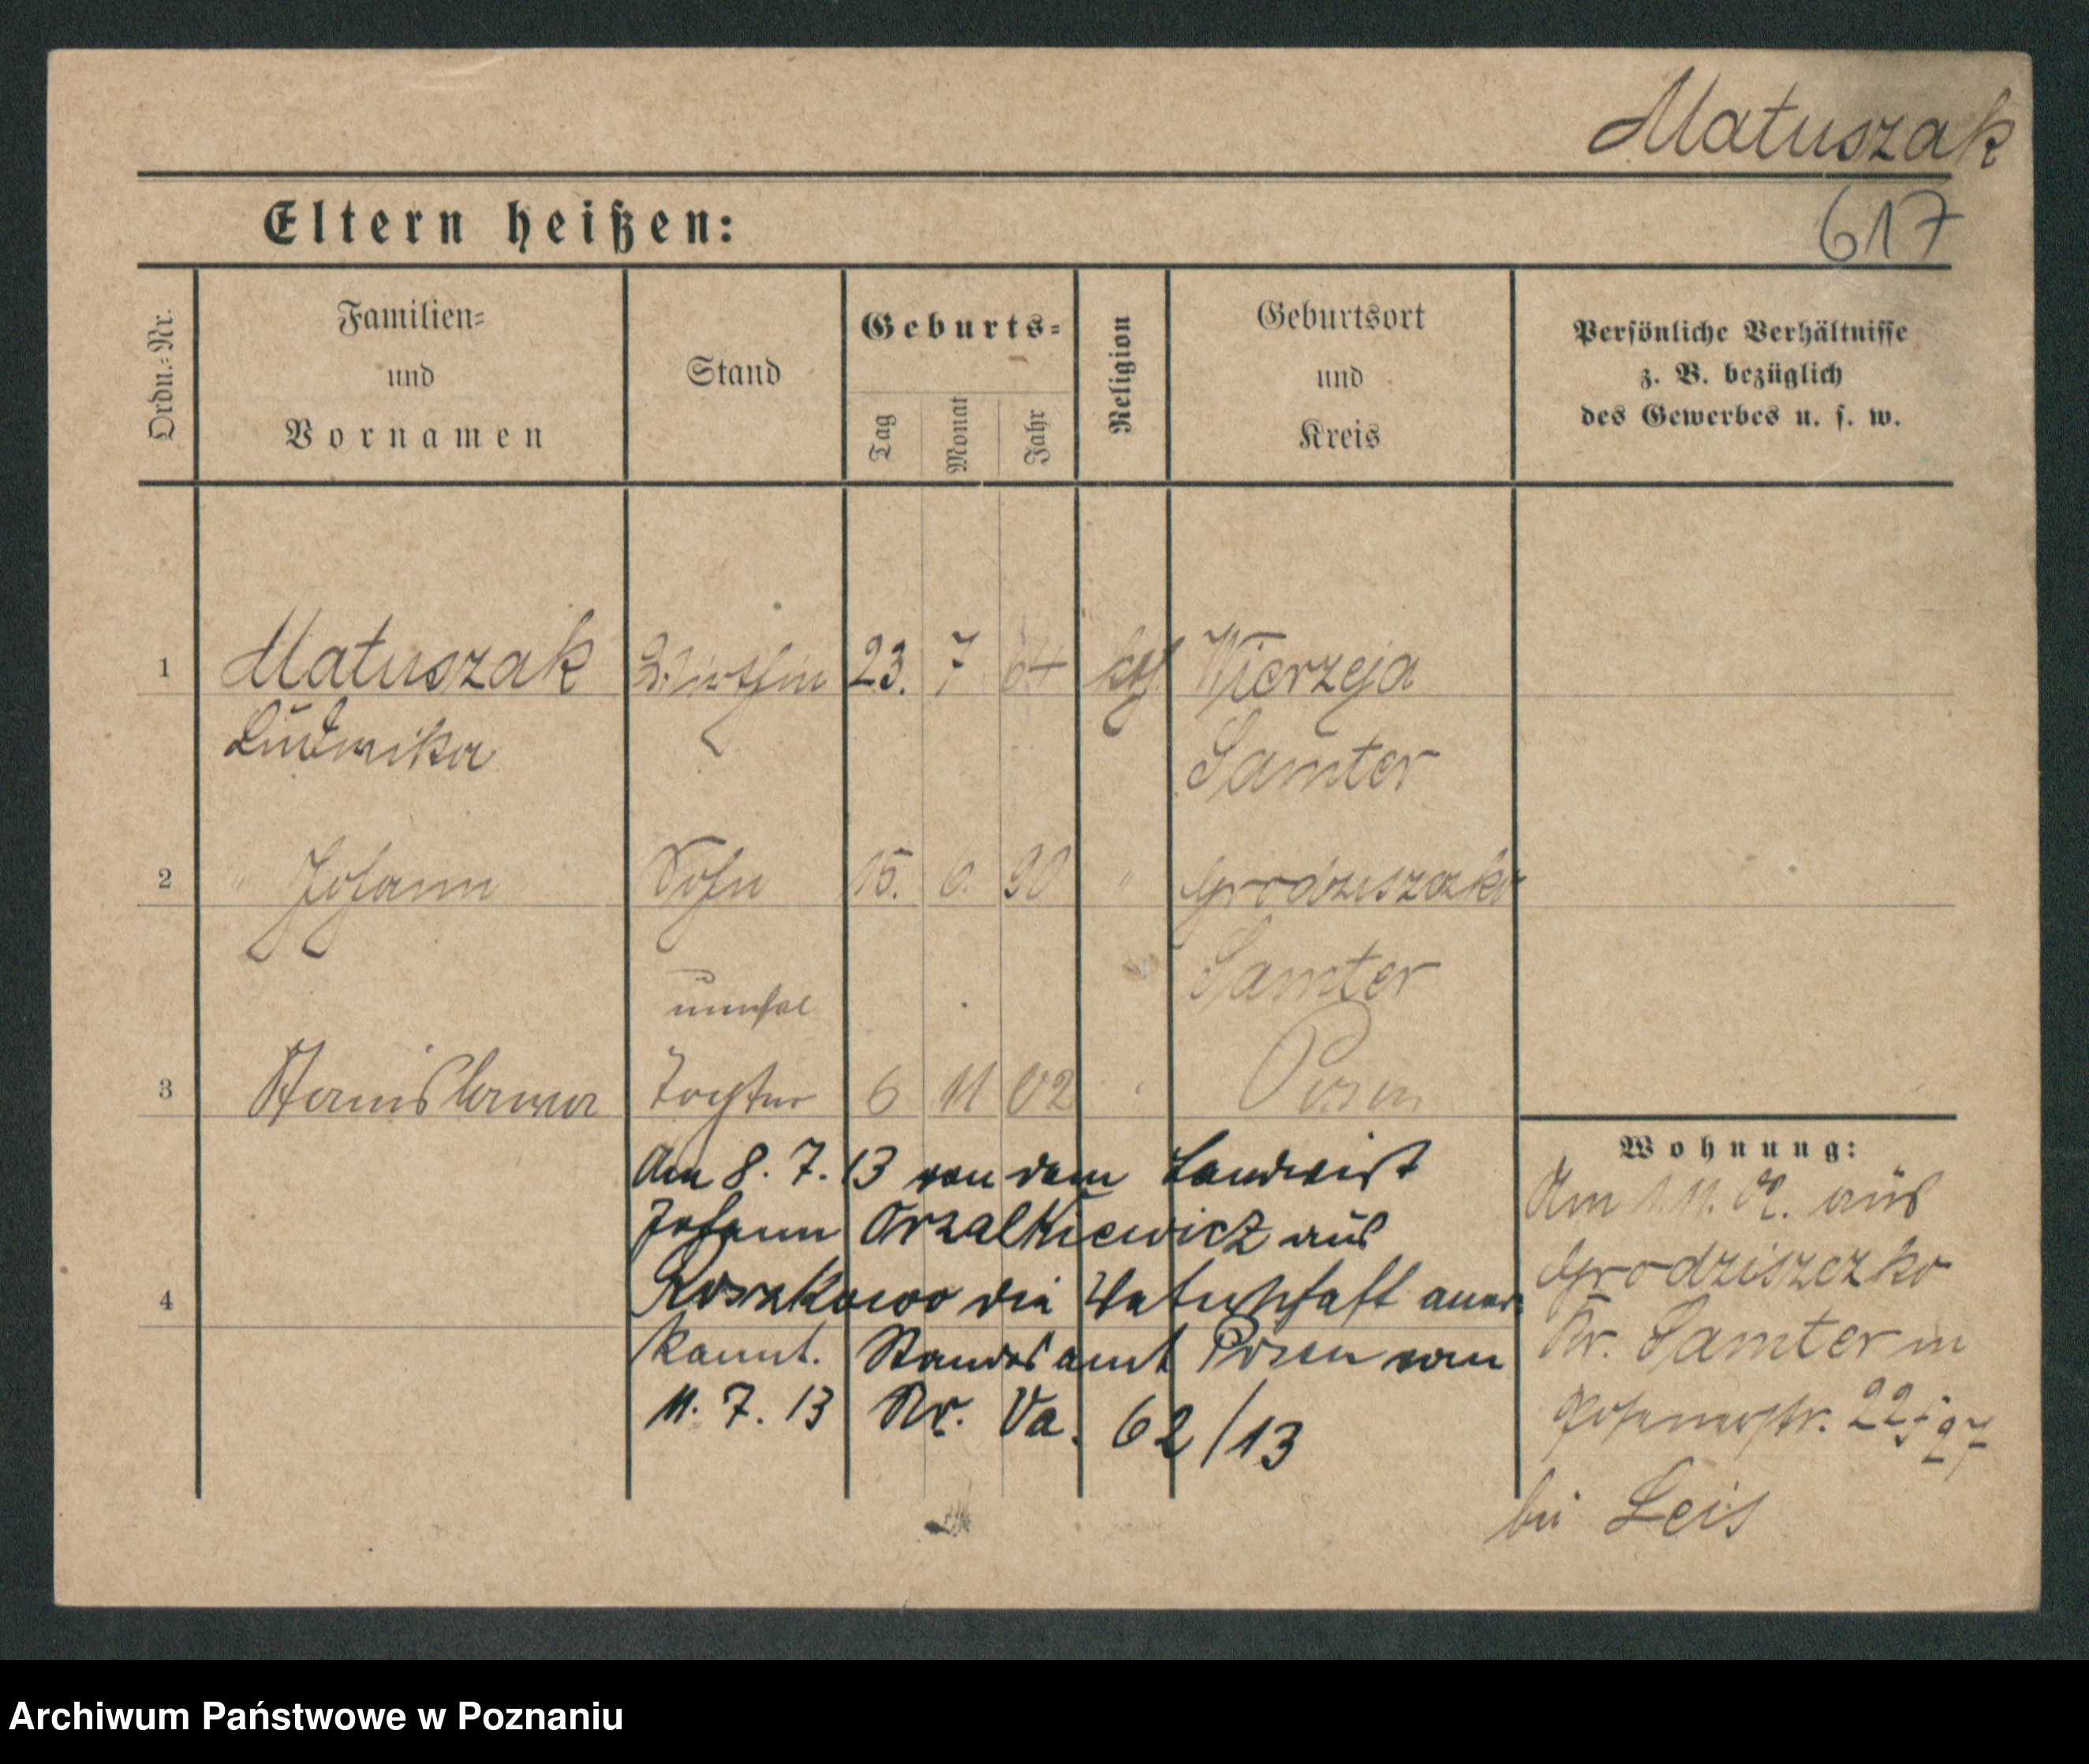 Matuszak
617
Eltern heißen:
Ordn.-Nr.
Familien-
und
Vornamen
Stand
Geburts-
Tag
Monat
Jahr
Religion
Geburtsort
und
Kreis
Persönliche Verhältnisse
z. B. bezüglich
des Gewerbes u. s. w.
1 Matuszak 23. 7 64 kath. Wierzeja
Ludwika Samter
2 " Johann Sohn 15. 6. 90 " Grodziszczko
Samter
unehel
3 Stanislawa Tochter 6 11 02 " Posen
Am 8. 7. 13 von dem Landwirt
Johann Orzalkiewicz aus
die Vaterschaft aner-
4
kannt. Standesamt Posen vom
11. 7. 13 Nr. Va. 62/13
Wohnung:
Am 1.11. 02. aus
Grodziszczko
Kr. Samter in
Posenerstr. 22
bei Leis
Archiwum Państwowe w Poznaniu